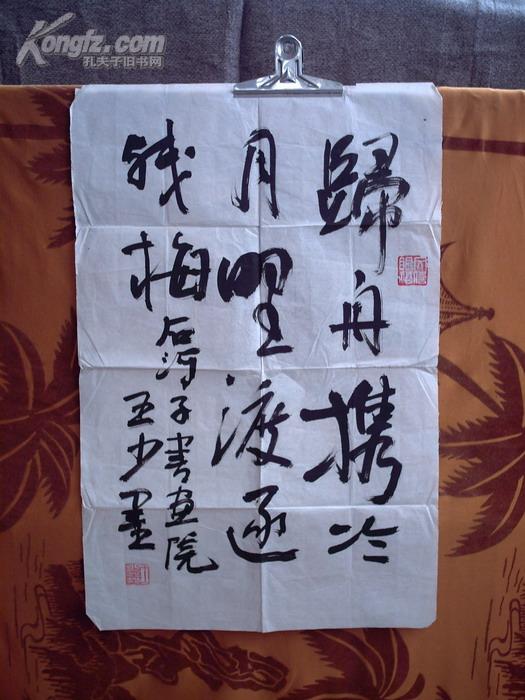 Kongfz.com
孔夫子旧书网
歸舟携冷
月野渡逐
残梅
石河子書画院
王少墨